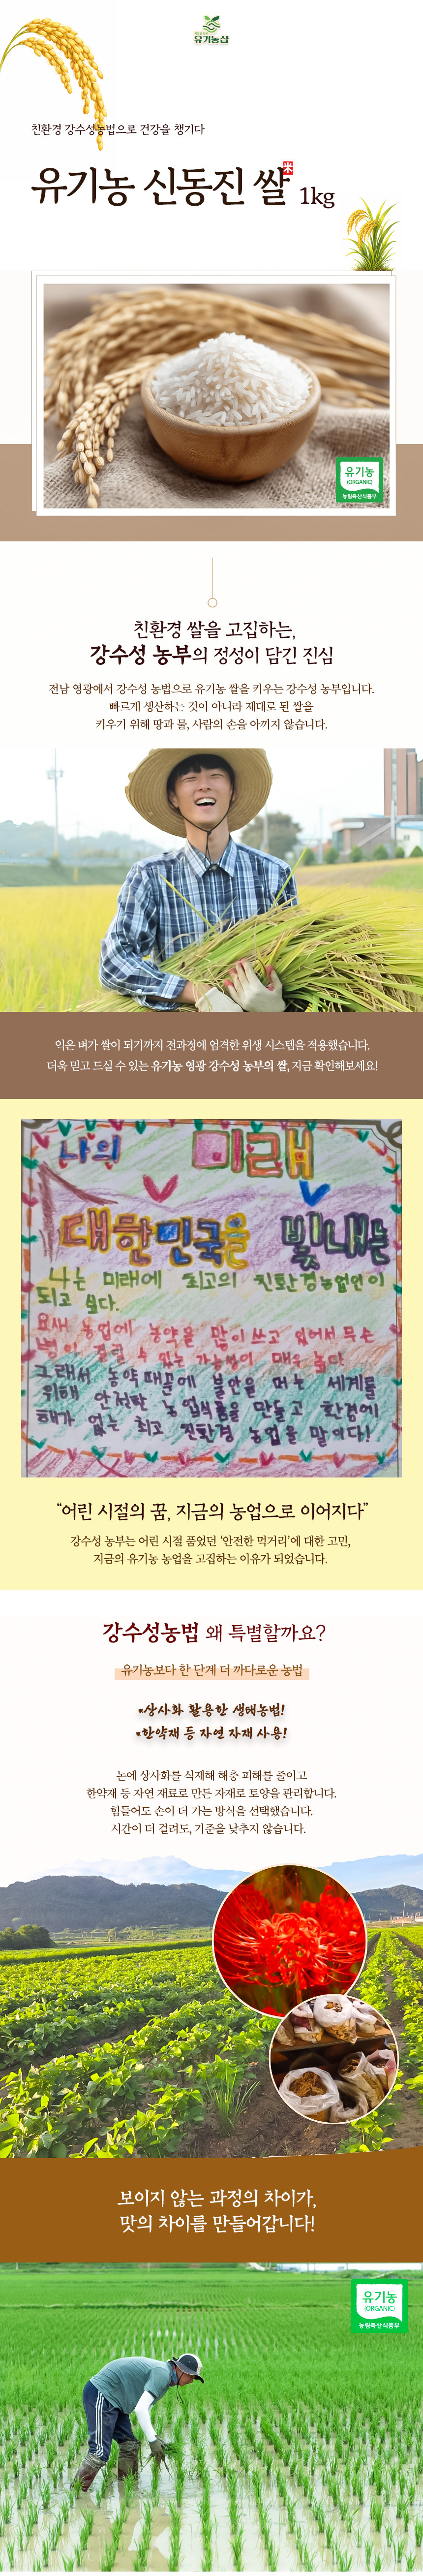 유기농샵
친환경 강수성농법으로 건강을 챙기다
유기농 신동진 쌀 米 1kg
유기농
(ORGANIC)
농림축산식품부
친환경 쌀을 고집하는,
강수성 농부의 정성이 담긴 진심
전남 영광에서 강수성 농법으로 유기농 쌀을 키우는 강수성 농부입니다.
빠르게 생산하는 것이 아니라 제대로 된 쌀을
키우기 위해 땅과 물, 사람의 손을 아끼지 않습니다.
익은 벼가 쌀이 되기까지 전과정에 엄격한 위생 시스템을 적용했습니다.
더욱 믿고 드실 수 있는 유기농 영광 강수성 농부의 쌀, 지금 확인해보세요!
나의 미래
대한민국을 빛내는
나는 미래에 최고의 친환경농업인이
되고 싶다.
요새 농업에 농약을 많이 쓰고 있어서 무슨
병이 걸릴 수 있는 가능성이 매우 높다
그래서 농약때문에 불안을 떠는 세계를
위해 안전한 농업식품을 만들고 환경에
해가 없는 최고 친환경 농업을 말이다!
“어린 시절의 꿈, 지금의 농업으로 이어지다”
강수성 농부는 어린 시절 품었던 ‘안전한 먹거리’에 대한 고민,
지금의 유기농 농업을 고집하는 이유가 되었습니다.
강수성농법 왜 특별할까요?
유기농보다 한 단계 더 까다로운 농법
*상사화 활용한 생태농법!
*한약재 등 자연 자재 사용!
논에 상사화를 식재해 해충 피해를 줄이고
한약재 등 자연 재료로 만든 자재로 토양을 관리합니다.
힘들어도 손이 더 가는 방식을 선택했습니다.
시간이 더 걸려도, 기준을 낮추지 않습니다.
보이지 않는 과정의 차이가,
맛의 차이를 만들어갑니다!
유기농
(ORGANIC)
농림축산식품부